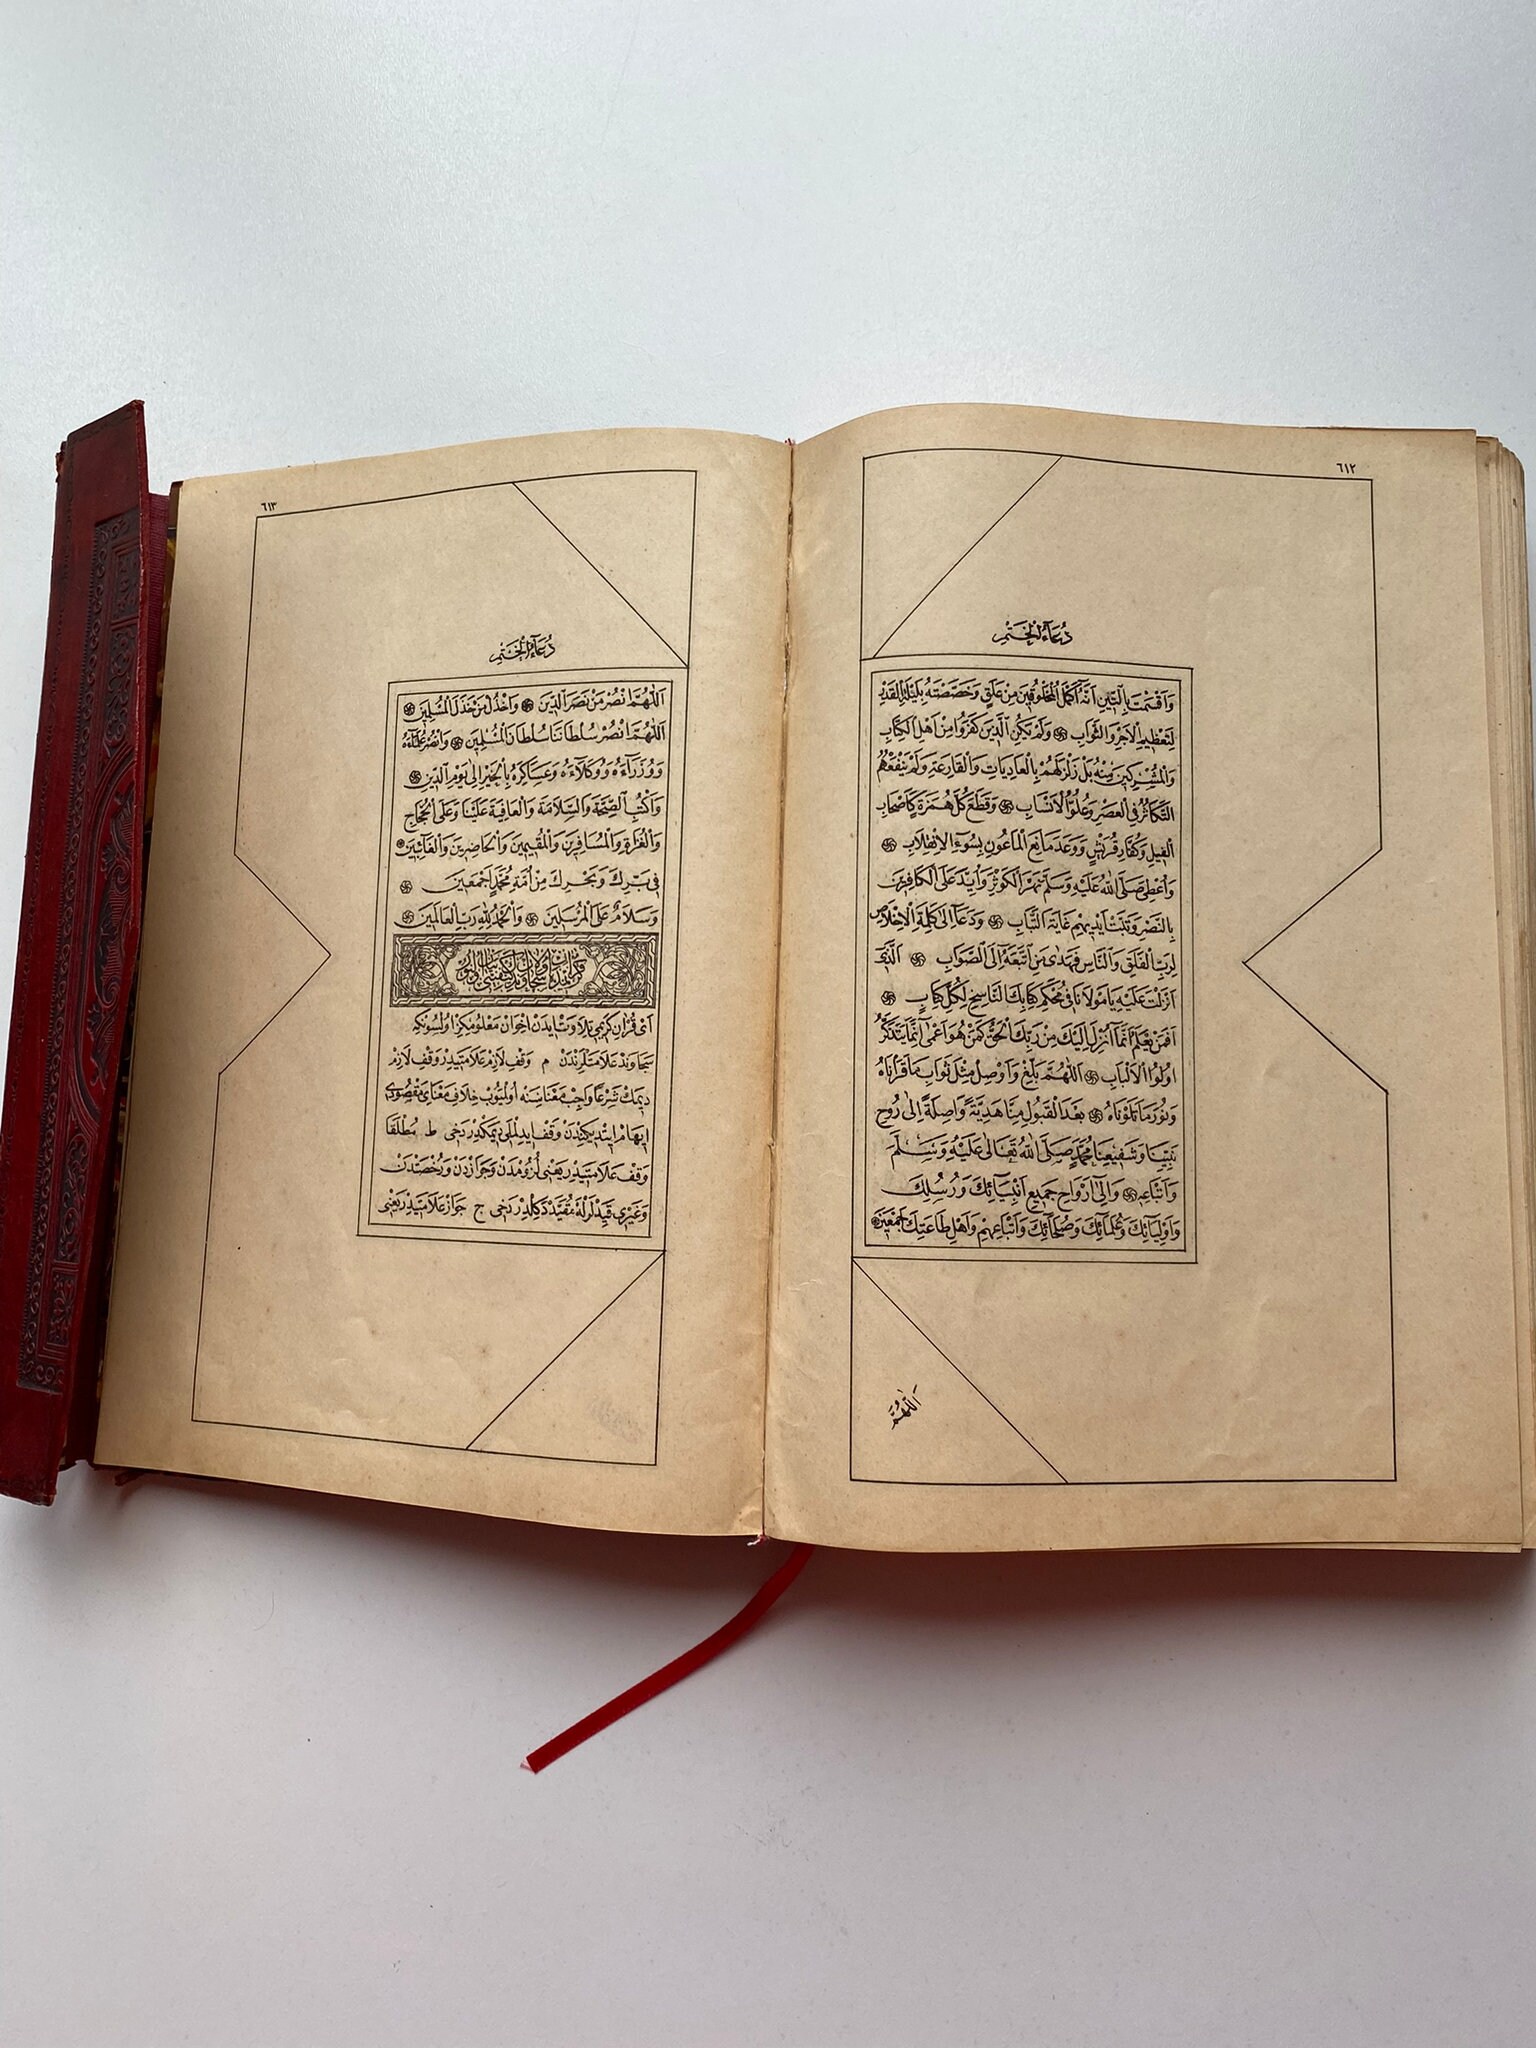 ٦١٢
دُعَاءُ الْخَتْمِ
وَاَقْسَمْتَ بِالتِّينِ اَنَّهُ اَكْمَلُ الْمَخْلُوقِينَ مِنْ عَلَقٍ وَخَصَّصْتَهُ بِلَيْلَةِ الْقَدْرِ
لِتَعْظِيمِ الْاَجْرِ وَالثَّوَابِ وَلَمْ يَكُنِ الَّذِينَ كَفَرُوا مِنْ اَهْلِ الْكِتَابِ
وَالْمُشْرِكِينَ مِنْهُ بَلْ زَلْزَلَهُمْ بِالْعَادِيَاتِ وَالْقَارِعَةِ وَلَمْ يَنْفَعْهُمُ
التَّكَاثُرُ فِي الْعَصْرِ وَعُلُوُّ الْاَنْسَابِ وَقَطَعَ كُلَّ هُمَزَةٍ كَاَصْحَابِ
الْفِيلِ وَكُفَّارِ قُرَيْشٍ وَوَعَدَ مَانِعَ الْمَاعُونِ بِسُوءِ الْاِنْقِلَابِ
وَاُعْطِيَ صَلَّى اللهُ عَلَيْهِ وَسَلَّمَ نَهَرَ الْكَوْثَرِ وَاُيِّدَ عَلَى الْكَافِرِينَ
بِالنَّصْرِ وَتَبَّتْ اَيْدِيهِمْ غَايَةَ التَّبَابِ وَدَعَا اِلَى كَلِمَةِ الْاِخْلَاصِ
لِرَبِّ الْفَلَقِ وَالنَّاسِ فَهَدٰى مَنِ اتَّبَعَهُ اِلَى الصَّوَابِ اَلَّذِى
اَنْزَلْتَ عَلَيْهِ يَا مَوْلَانَا فِى مُحْكَمِ كِتَابِكَ النَّاسِخِ لِكُلِّ كِتَابٍ
اَفَمَنْ يَعْلَمُ اَنَّمَا اُنْزِلَ اِلَيْكَ مِنْ رَبِّكَ الْحَقُّ كَمَنْ هُوَ اَعْمٰى اِنَّمَا يَتَذَكَّرُ
اُولُوا الْاَلْبَابِ اَللّٰهُمَّ بَلِّغْ وَاَوْصِلْ مِثْلَ ثَوَابِ مَا قَرَاْنَاهُ
وَنُورَ مَا تَلَوْنَاهُ بَعْدَ الْقَبُولِ مِنَّا هَدِيَّةً وَاصِلَةً اِلٰى رُوحِ
نَبِيِّنَا وَشَفِيعِنَا مُحَمَّدٍ صَلَّى اللهُ تَعَالٰى عَلَيْهِ وَسَلَّمَ
وَاَتْبَاعِهِ وَاِلٰى اَرْوَاحِ جَمِيعِ اَنْبِيَائِكَ وَرُسُلِكَ
وَاَوْلِيَائِكَ وَعُلَمَائِكَ وَصُلَحَائِكَ وَاَتْبَاعِهِمْ وَاَهْلِ طَاعَتِكَ اَجْمَعِينَ
اَللّٰهُمَّ
٦١٣
دُعَاءُ الْخَتْمِ
اَللّٰهُمَّ انْصُرْ مَنْ نَصَرَ الدِّينَ وَاخْذُلْ مَنْ خَذَلَ الْمُسْلِمِينَ
اَللّٰهُمَّ انْصُرْ سُلْطَانَنَا سُلْطَانَ الْمُسْلِمِينَ وَانْصُرْ عُلَمَاءَهُ
وَوُزَرَاءَهُ وَوُكَلَاءَهُ وَعَسَاكِرَهُ بِالْخَيْرِ اِلٰى يَوْمِ الدِّينِ
وَاكْتُبِ الصِّحَّةَ وَالسَّلَامَةَ وَالْعَافِيَةَ عَلَيْنَا وَعَلَى الْحُجَّاجِ
وَالْغُزَاةِ وَالْمُسَافِرِينَ وَالْمُقِيمِينَ وَالْحَاضِرِينَ وَالْغَائِبِينَ
فِى بَرِّكَ وَبَحْرِكَ مِنْ اُمَّةِ مُحَمَّدٍ اَجْمَعِينَ
وَسَلَامٌ عَلَى الْمُرْسَلِينَ وَالْحَمْدُ لِلّٰهِ رَبِّ الْعَالَمِينَ
اَىْ قُرْاٰنِ كَرِيمِى تِلَاوَت اِيدَنْ اِخْوَانْ مَعْلُومِكِزْ اُولْسُونْكِه
سَجَاوَنْد عَلَامَتْلَرِنْدَنْ م وَقْفِ لَازِمْ عَلَامَتِيدِرْ وَقْفِ لَازِمْ
دِيمَكْ شَرْعًا وَاجِبْ مَعْنَاسِنَه اُولْمَيُوبْ خِلَافِ مَعْنَاىِ مَقْصُودِى
اِيهَامْ اِيتْدِيكِنْدَنْ وَقْف اِيدِلْمَلِى دِيمَكْدِرْ دَخِى ط مُطْلَقَا
وَقْفْ عَلَامَتِيدِرْ يَعْنِى لُزُومْدَنْ وَجَوَازْدَنْ وَرُخْصَتْدَنْ
وَغَيْرِى قَيْدْلَرْلَه مُقَيَّدْ دَكِلْدِرْ دَخِى ج جَوَازْ عَلَامَتِيدِرْ يَعْنِى